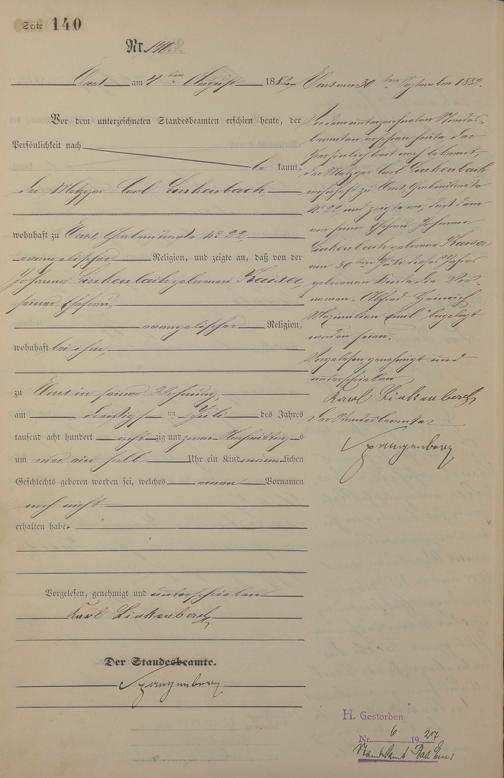 Seite 140
Nr. 140.
Ems am 4ten August 1882
Vor dem unterzeichneten Standesbeamten erschien heute, der
Persönlichkeit nach
be kannt,
der Metzger Carl Linkenbach
wohnhaft zu Ems Grabenstraße No 22,
evangelischer Religion, und zeigte an, daß von der
Johanna Linkenbach gebornen Kaiser
seiner Ehefrau,
evangelischer Religion,
wohnhaft bei ihm,
zu Ems in seiner Wohnung,
am dreißigsten Juli des Jahres
tausend acht hundert acht zig und zwei Nachmittags
um Uhr ein Kind männlichen
Geschlechts geboren worden sei, welches einen Vornamen
noch nicht
erhalten habe.
Vorgelesen, genehmigt und unterschrieben
Karl Linkenbach
Der Standesbeamte.
Spangenberg
Ems am 30ten September 1882.
Vor dem unterzeichneten Standes-
beamten erschien heute der
Persönlichkeit nach bekannt,
der Metzger Carl Linkenbach
wohnhaft zu Ems
No 22 und zeigte an, daß dem
von seiner Ehefrau Johanna
Linkenbach gebornen Kaiser
am 30ten Juli dieses Jahres
gebornen Kinde die Vor-
namen "Alfred Heinrich
Maximilian Emil" beigelegt
worden seien.
Vorgelesen genehmigt und
unterschrieben
Karl Linkenbach
Der Standesbeamte
Spangenberg
H. Gestorben
Nr. 6 1927
Standesamt Bad Ems